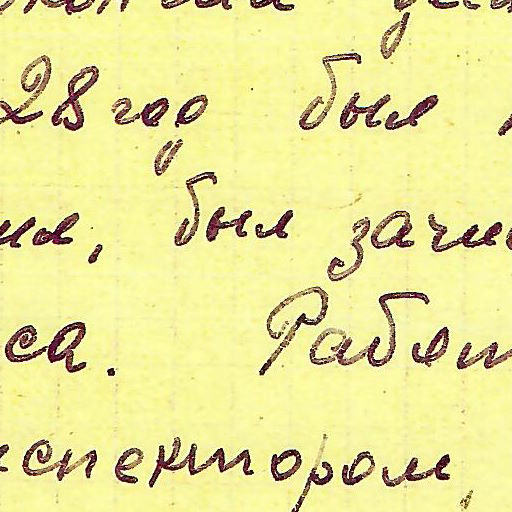 28 году был
был зачис
са. Работ
нспектором,